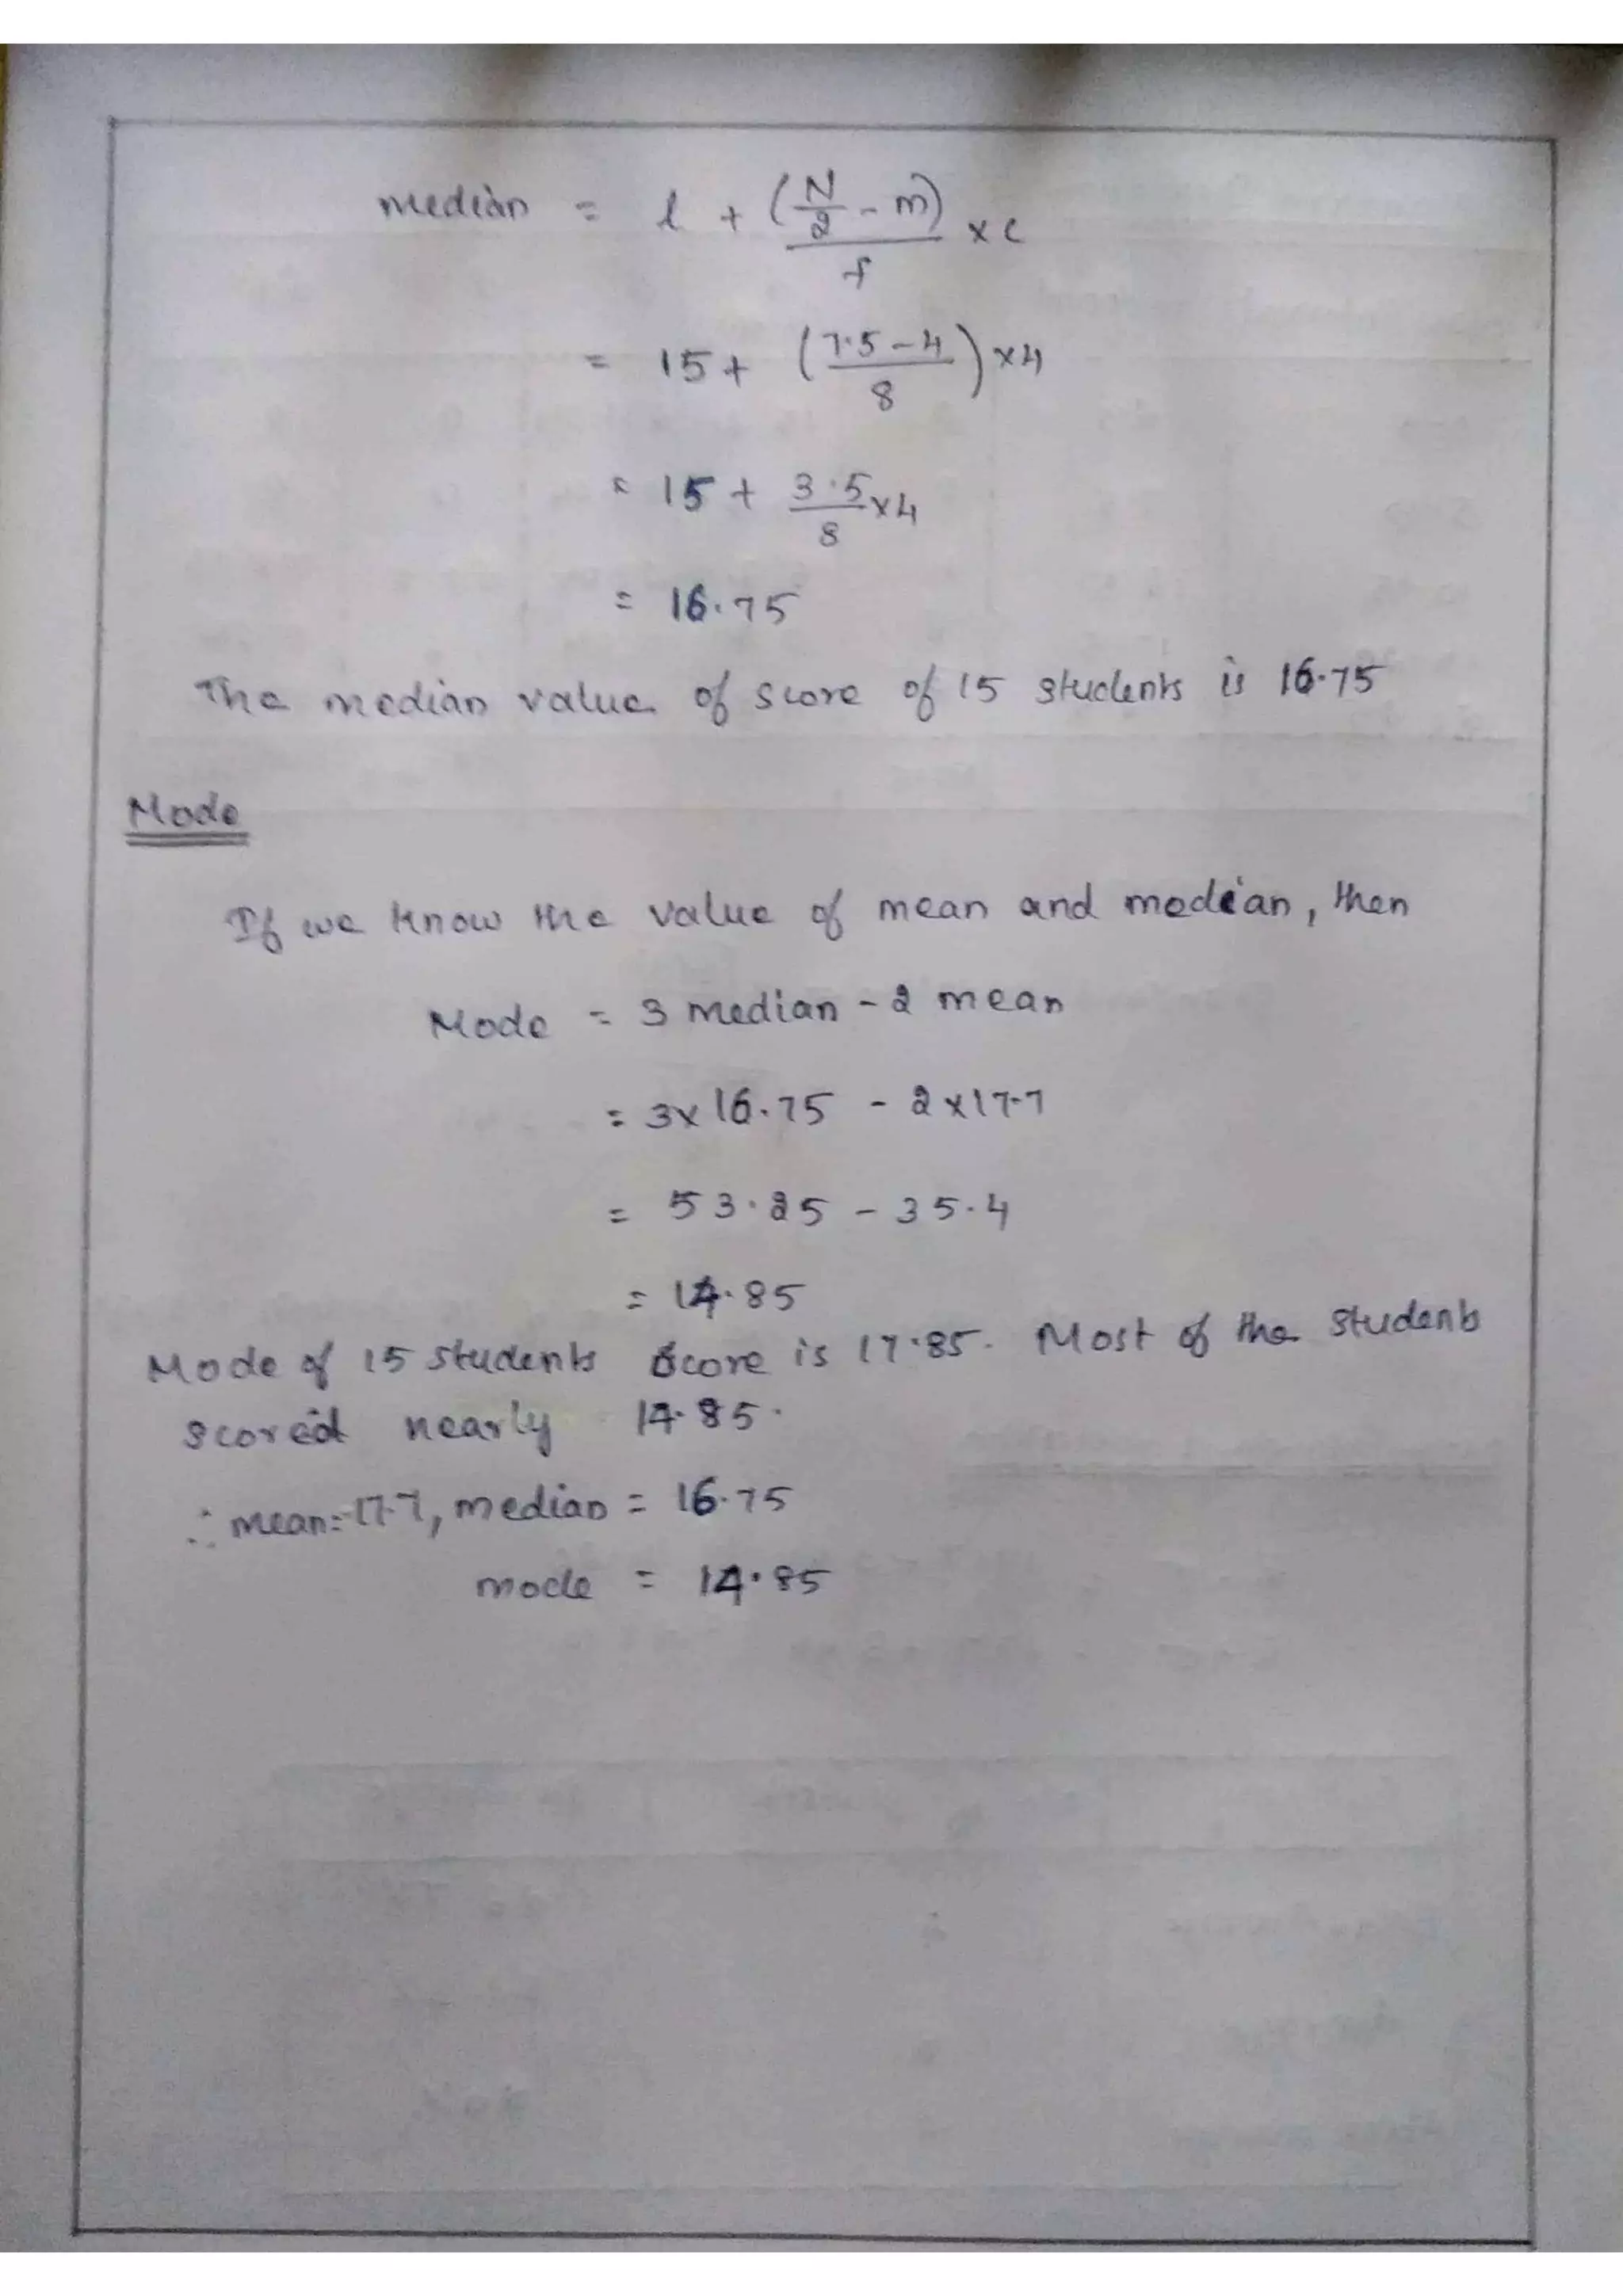 median = l + (N/2 - m)/f × c
= 15 + (7.5 - 4 / 8) × 4
= 15 + 3.5/8 × 4
= 16.75
The median value of score of 15 students is 16.75
Mode
If we know the value of mean and median, then
Mode = 3 median - 2 mean
= 3 × 16.75 - 2 × 17.7
= 53.25 - 35.4
= 14.85
Mode of 15 students score is 17.85. Most of the students
scored nearly 14.85.
∴ mean = 17.7, median = 16.75
mode = 14.85